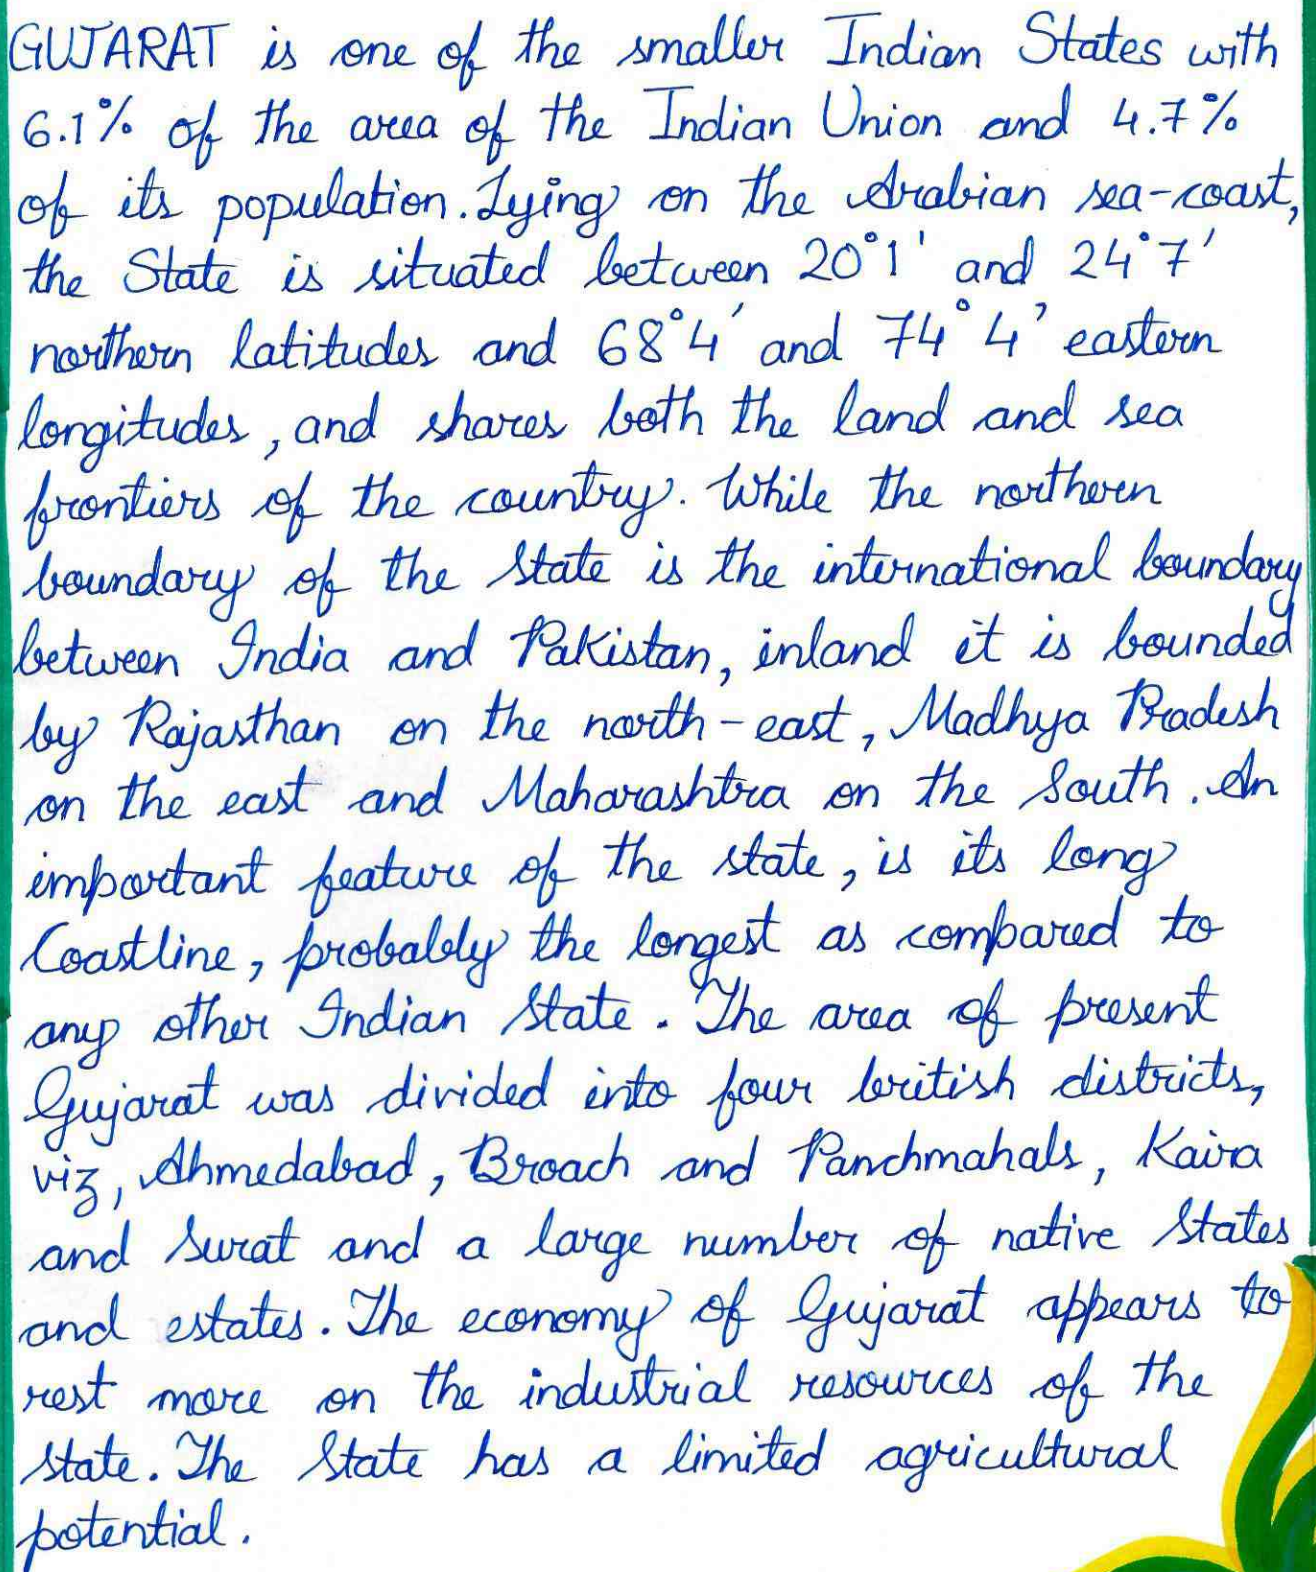 GUJARAT is one of the smaller Indian States with
6.1% of the area of the Indian Union and 4.7%
of its population. Lying on the Arabian sea-coast,
the State is situated between 20°1' and 24°7'
northern latitudes and 68°4' and 74°4' eastern
longitudes, and shares both the land and sea
frontiers of the country. While the northern
boundary of the State is the international boundary
between India and Pakistan, inland it is bounded
by Rajasthan on the north-east, Madhya Pradesh
on the east and Maharashtra on the South. An
important feature of the state, is its long
Coastline, probably the longest as compared to
any other Indian State. The area of present
Gujarat was divided into four british districts,
viz, Ahmedabad, Broach and Panchmahals, Kaira
and Surat and a large number of native States
and estates. The economy of Gujarat appears to
rest more on the industrial resources of the
state. The State has a limited agricultural
potential.